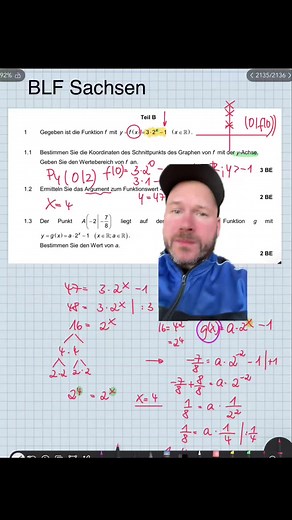 92%
2135/2136
BLF Sachsen
Teil B
1 Gegeben ist die Funktion f mit y = f(x) = 3·2ˣ – 1 (x∈ℝ).
(0|f(0))
1.1 Bestimmen Sie die Koordinaten des Schnittpunkts des Graphen von f mit der y-Achse.
Geben Sie den Wertebereich von f an.
3 BE
Py(0|2) f(0) = 3·2⁰ –
; y > –1
3·1
1.2 Ermitteln Sie das Argument zum Funktionswert
2 BE
x = 4
y = 47
1.3 Der Punkt A(–2|–7/8) liegt auf de
Funktion g mit
y = g(x) = a·2ˣ – 1 (x∈ℝ; a∈ℝ).
Bestimmen Sie den Wert von a.
2 BE
47 = 3·2ˣ – 1
48 = 3·2ˣ |:3
16 = 2ˣ
4·4
2·2 2·2
2⁴ = 2ˣ
x = 4
16 = 4²
= 2⁴
g(x) = a·2ˣ – 1
–7/8 = a·2⁻² – 1 |+1
–7/8 + 8/8 = a·2⁻²
1/8 = a·1/2²
1/8 = a·1/4 |:1/4